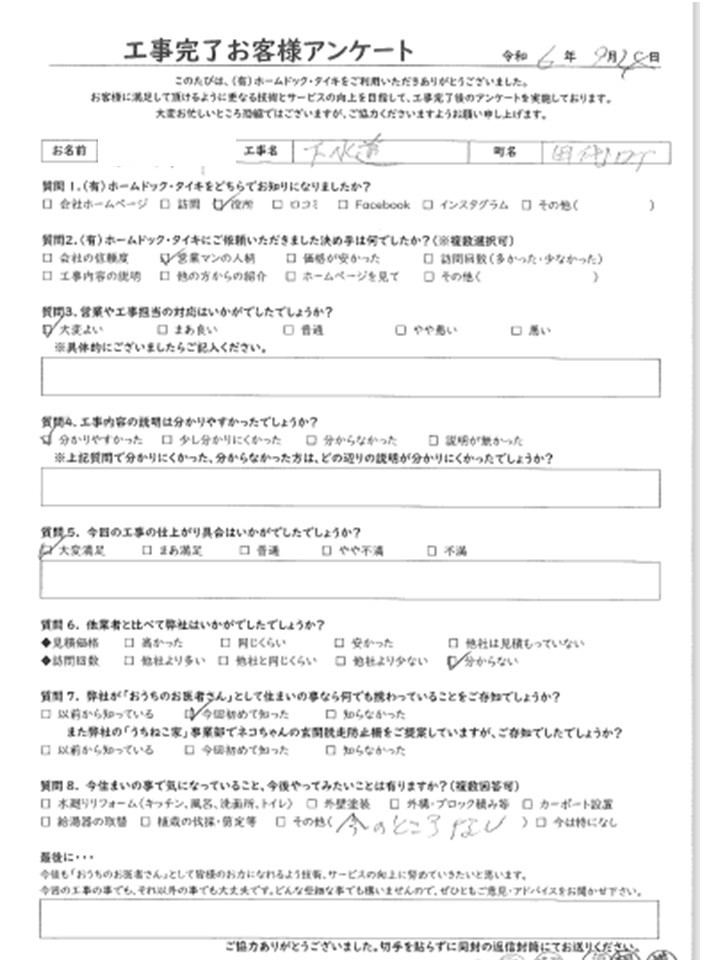 工事完了お客様アンケート 令和 6 年 9月 日
このたびは、(有)ホームドック・タイキをご利用いただきありがとうございました。
お客様に満足して頂けるように更なる技術とサービスの向上を目指して、工事完了後のアンケートを実施しております。
大変お忙しいところ恐縮ではございますが、ご協力くださいますようお願い申し上げます。
お名前 工事名 下水道 町名 田代
質問 1.(有)ホームドック・タイキをどちらでお知りになりましたか?
□ 会社ホームページ □ 訪問 ☑ 役所 □ 口コミ □ Facebook □ インスタグラム □ その他( )
質問2.(有)ホームドック・タイキにご依頼いただきました決め手は何でしたか?(※複数選択可)
□ 会社の信頼度 ☑ 営業マンの人柄 □ 価格が安かった □ 訪問回数(多かった・少なかった)
□ 工事内容の説明 □ 他の方からの紹介 □ ホームページを見て □ その他( )
質問3.営業や工事担当の対応はいかがでしたでしょうか?
☑ 大変よい □ まあ良い □ 普通 □ やや悪い □ 悪い
※具体的にございましたらご記入ください。
質問4.工事内容の説明は分かりやすかったでしょうか?
☑ 分かりやすかった □ 少し分かりにくかった □ 分からなかった □ 説明が無かった
※上記質問で分かりにくかった、分からなかった方は、どの辺りの説明が分かりにくかったでしょうか?
質問5. 今回の工事の仕上がり具合はいかがでしたでしょうか?
☑ 大変満足 □ まあ満足 □ 普通 □ やや不満 □ 不満
質問 6. 他業者と比べて弊社はいかがでしたでしょうか?
◆見積価格 □ 高かった □ 同じくらい □ 安かった □ 他社は見積もっていない
◆訪問回数 □ 他社より多い □ 他社と同じくらい □ 他社より少ない ☑ 分からない
質問 7. 弊社が「おうちのお医者さん」として住まいの事なら何でも携わっていることをご存知でしょうか?
□ 以前から知っている ☑ 今回初めて知った □ 知らなかった
また弊社の「うちねこ家」事業部でネコちゃんの玄関脱走防止柵をご提案していますが、ご存知でしたでしょうか?
□ 以前から知っている □ 今回初めて知った □ 知らなかった
質問 8. 今住まいの事で気になっていること、今後やってみたいことは有りますか?(複数回答可)
□ 水廻りリフォーム(キッチン、風呂、洗面所、トイレ) □ 外壁塗装 □ 外構・ブロック積み等 □ カーポート設置
□ 給湯器の取替 □ 植栽の伐採・剪定等 □ その他( 今のところなし ) □ 今は特になし
最後に・・・
今後も「おうちのお医者さん」として皆様のお力になれるよう技術、サービスの向上に努めていきたいと思います。
今回の工事の事でも、それ以外の事でも大丈夫です。どんな些細な事でも構いませんので、ぜひともご意見・アドバイスをお聞かせ下さい。
ご協力ありがとうございました。切手を貼らずに同封の返信封筒にてお送りください。